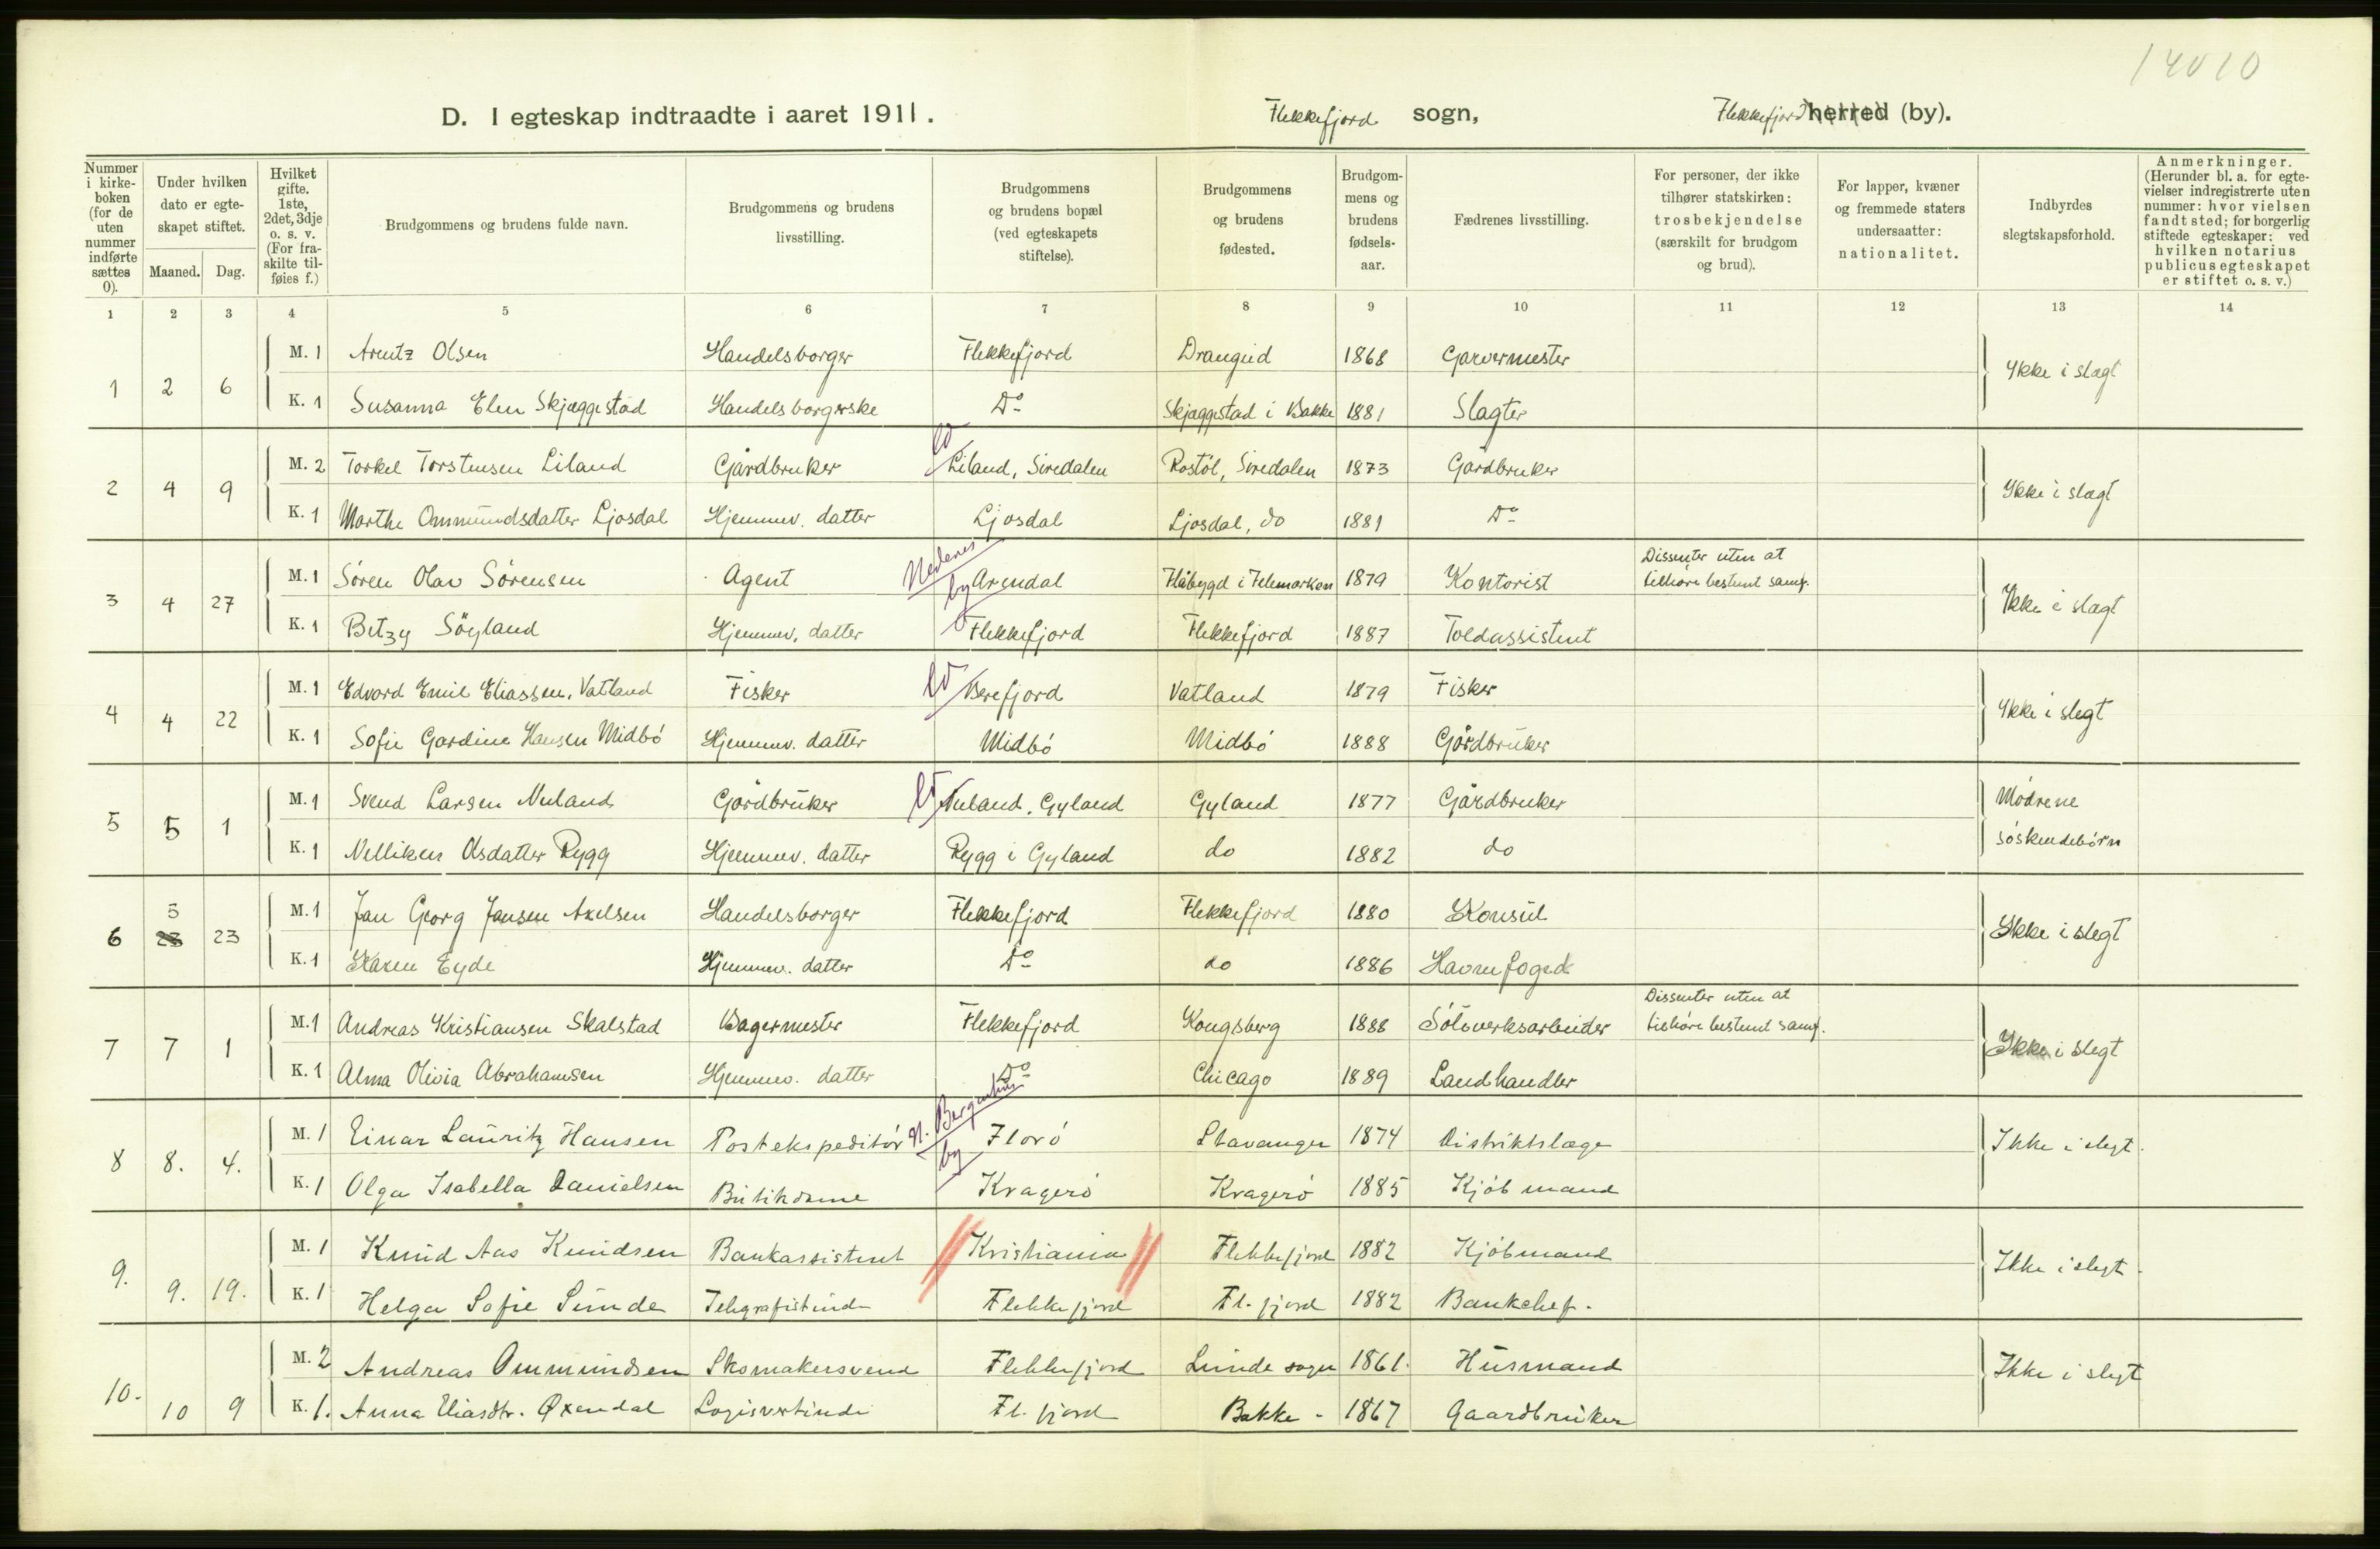 14010
D. I egteskap indtraadte i aaret 1911. Flekkefjord sogn, Flekkefjord herred (by).
Nummer i kirke-boken (for de uten nummer indførte sættes 0).
Under hvilken dato er egte-skapet stiftet.
Maaned. Dag.
Hvilket gifte. 1ste, 2det, 3dje o. s. v. (For fra-skilte til-føies f.)
Brudgommens og brudens fulde navn.
Brudgommens og brudens livsstilling.
Brudgommens og brudens bopæl (ved egteskapets stiftelse).
Brudgommens og brudens fødested.
Brudgom-mens og brudens fødsels-aar.
Fædrenes livsstilling.
For personer, der ikke tilhører statskirken: trosbekjendelse (særskilt for brudgom og brud).
For lapper, kvæner og fremmede staters undersaatter: nationalitet.
Indbyrdes slegtskapsforhold.
Anmerkninger. (Herunder bl. a. for egte-vielser indregistrerte uten nummer: hvor vielsen fandt sted; for borgerlig stiftede egteskaper: ved hvilken notarius publicus egteskapet er stiftet o. s. v.)
1 2 3 4 5 6 7 8 9 10 11 12 13 14
M. 1 Arntz Olsen Handelsborger Flekkefjord Drangeid 1868 Garvermester
1 2 6 Ikke i slægt
K. 1 Susanna Elen Skjæggestad Handelsborgerske Do Skjæggestad i Bakke 1881 Slagter
M. 2 Torkel Torstensen Liland Gårdbruker Liland, Siredalen Rostöl, Siredalen 1873 Gårdbruker
2 4 9 Ikke i slægt
K. 1 Marthe Ommundsdatter Ljosdal Hjemmev. datter Ljosdal Ljosdal, do 1881 Do
M. 1 Sören Olav Sörensen Agent Nedenes by Arendal Flåbygd i Telemarken 1879 Kontorist Dissenter uten at tilhöre bestemt samf.
3 4 27 Ikke i slægt
K. 1 Betzy Söyland Hjemmev. datter Flekkefjord Flekkefjord 1887 Toldassistent
M. 1 Edvard Emil Eliassen, Vatland Fisker Berefjord Vatland 1879 Fisker
4 4 22 Ikke i slegt
K. 1 Sofie Gardine Hansen Midbö Hjemmev. datter Midbö Midbö 1888 Gårdbruker
M. 1 Svend Larsen Nuland Gårdbruker Nuland, Gyland Gyland 1877 Gårdbruker Mödrene
5 5 1 söskendebörn
K. 1 Nelliken Olsdatter Rygg Hjemmev. datter Rygg i Gyland do 1882 do
M. 1 Jan Georg Jansen Axelsen Handelsborger Flekkefjord Flekkefjord 1880 Konsul
6 5 23 Ikke i slegt
K. 1 Karen Eyde Hjemmev. datter Do do 1886 Havnefoged
M. 1 Andreas Kristiansen Skalstad Bagermester Flekkefjord Kongsberg 1888 Sölvverksarbeider Dissenter uten at tilhöre bestemt samf.
7 7 1 Ikke i slegt
K. 1 Alma Olivia Abrahamsen Hjemmev. datter Do Chicago 1889 Landhandler
M. 1 Einar Lauritz Hansen Postekspeditör N. Bergenhus by Florö Stavanger 1874 Distriktslæge
8 8. 4. Ikke i slegt.
K. 1 Olga Isabella Danielsen Butikdame Kragerö Kragerö 1885 Kjöbmand
M. 1 Knud Aas Knudsen Bankassistent Kristiania Flekkefjord 1882 Kjöbmand
9. 9. 19. Ikke i slegt.
K. 1 Helga Sofie Sunde Telegrafistinde Flekkefjord Fl. fjord 1882 Bankchef.
M. 2 Andreas Ommundsen Skomakersvend Flekkefjord Lunde sogn 1861. Husmand
10. 10 9 Ikke i slegt
K. 1. Anna Eliasdtr. Øxendal Logisvertinde Fl. fjord Bakke - 1867 Gaardbruker